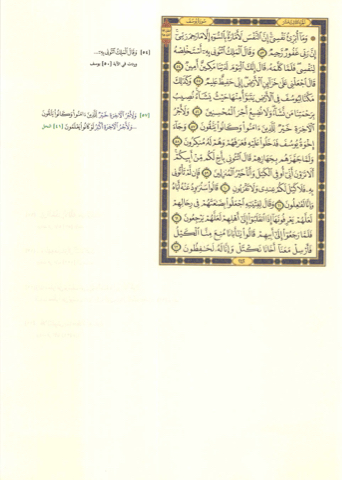 وَمَا أُبَرِّئُ نَفْسِي إِنَّ النَّفْسَ لَأَمَّارَةٌ بِالسُّوءِ إِلَّا مَا رَحِمَ رَبِّي
إِنَّ رَبِّي غَفُورٌ رَحِيمٌ وَقَالَ الْمَلِكُ ائْتُونِي بِهِ أَسْتَخْلِصْهُ
لِنَفْسِي فَلَمَّا كَلَّمَهُ قَالَ إِنَّكَ الْيَوْمَ لَدَيْنَا مَكِينٌ أَمِينٌ
قَالَ اجْعَلْنِي عَلَى خَزَائِنِ الْأَرْضِ إِنِّي حَفِيظٌ عَلِيمٌ وَكَذَلِكَ
مَكَّنَّا لِيُوسُفَ فِي الْأَرْضِ يَتَبَوَّأُ مِنْهَا حَيْثُ يَشَاءُ نُصِيبُ
بِرَحْمَتِنَا مَنْ نَشَاءُ وَلَا نُضِيعُ أَجْرَ الْمُحْسِنِينَ وَلَأَجْرُ
الْآخِرَةِ خَيْرٌ لِلَّذِينَ آمَنُوا وَكَانُوا يَتَّقُونَ وَجَاءَ
إِخْوَةُ يُوسُفَ فَدَخَلُوا عَلَيْهِ فَعَرَفَهُمْ وَهُمْ لَهُ مُنْكِرُونَ
وَلَمَّا جَهَّزَهُمْ بِجَهَازِهِمْ قَالَ ائْتُونِي بِأَخٍ لَكُمْ مِنْ أَبِيكُمْ
أَلَا تَرَوْنَ أَنِّي أُوفِي الْكَيْلَ وَأَنَا خَيْرُ الْمُنْزِلِينَ فَإِنْ لَمْ تَأْتُونِي
بِهِ فَلَا كَيْلَ لَكُمْ عِنْدِي وَلَا تَقْرَبُونِ قَالُوا سَنُرَاوِدُ عَنْهُ أَبَاهُ
وَإِنَّا لَفَاعِلُونَ وَقَالَ لِفِتْيَانِهِ اجْعَلُوا بِضَاعَتَهُمْ فِي رِحَالِهِمْ
لَعَلَّهُمْ يَعْرِفُونَهَا إِذَا انْقَلَبُوا إِلَى أَهْلِهِمْ لَعَلَّهُمْ يَرْجِعُونَ
فَلَمَّا رَجَعُوا إِلَى أَبِيهِمْ قَالُوا يَا أَبَانَا مُنِعَ مِنَّا الْكَيْلُ
فَأَرْسِلْ مَعَنَا أَخَانَا نَكْتَلْ وَإِنَّا لَهُ لَحَافِظُونَ
[٥٤] وَقَالَ الْمَلِكُ ائْتُونِي بِهِ...
وردت في الآية [٥٠] يوسف
[٥٧] وَلَأَجْرُ الْآخِرَةِ خَيْرٌ لِلَّذِينَ آمَنُوا وَكَانُوا يَتَّقُونَ
...وَلَأَجْرُ الْآخِرَةِ أَكْبَرُ لَوْ كَانُوا يَعْلَمُونَ [٤١] النحل